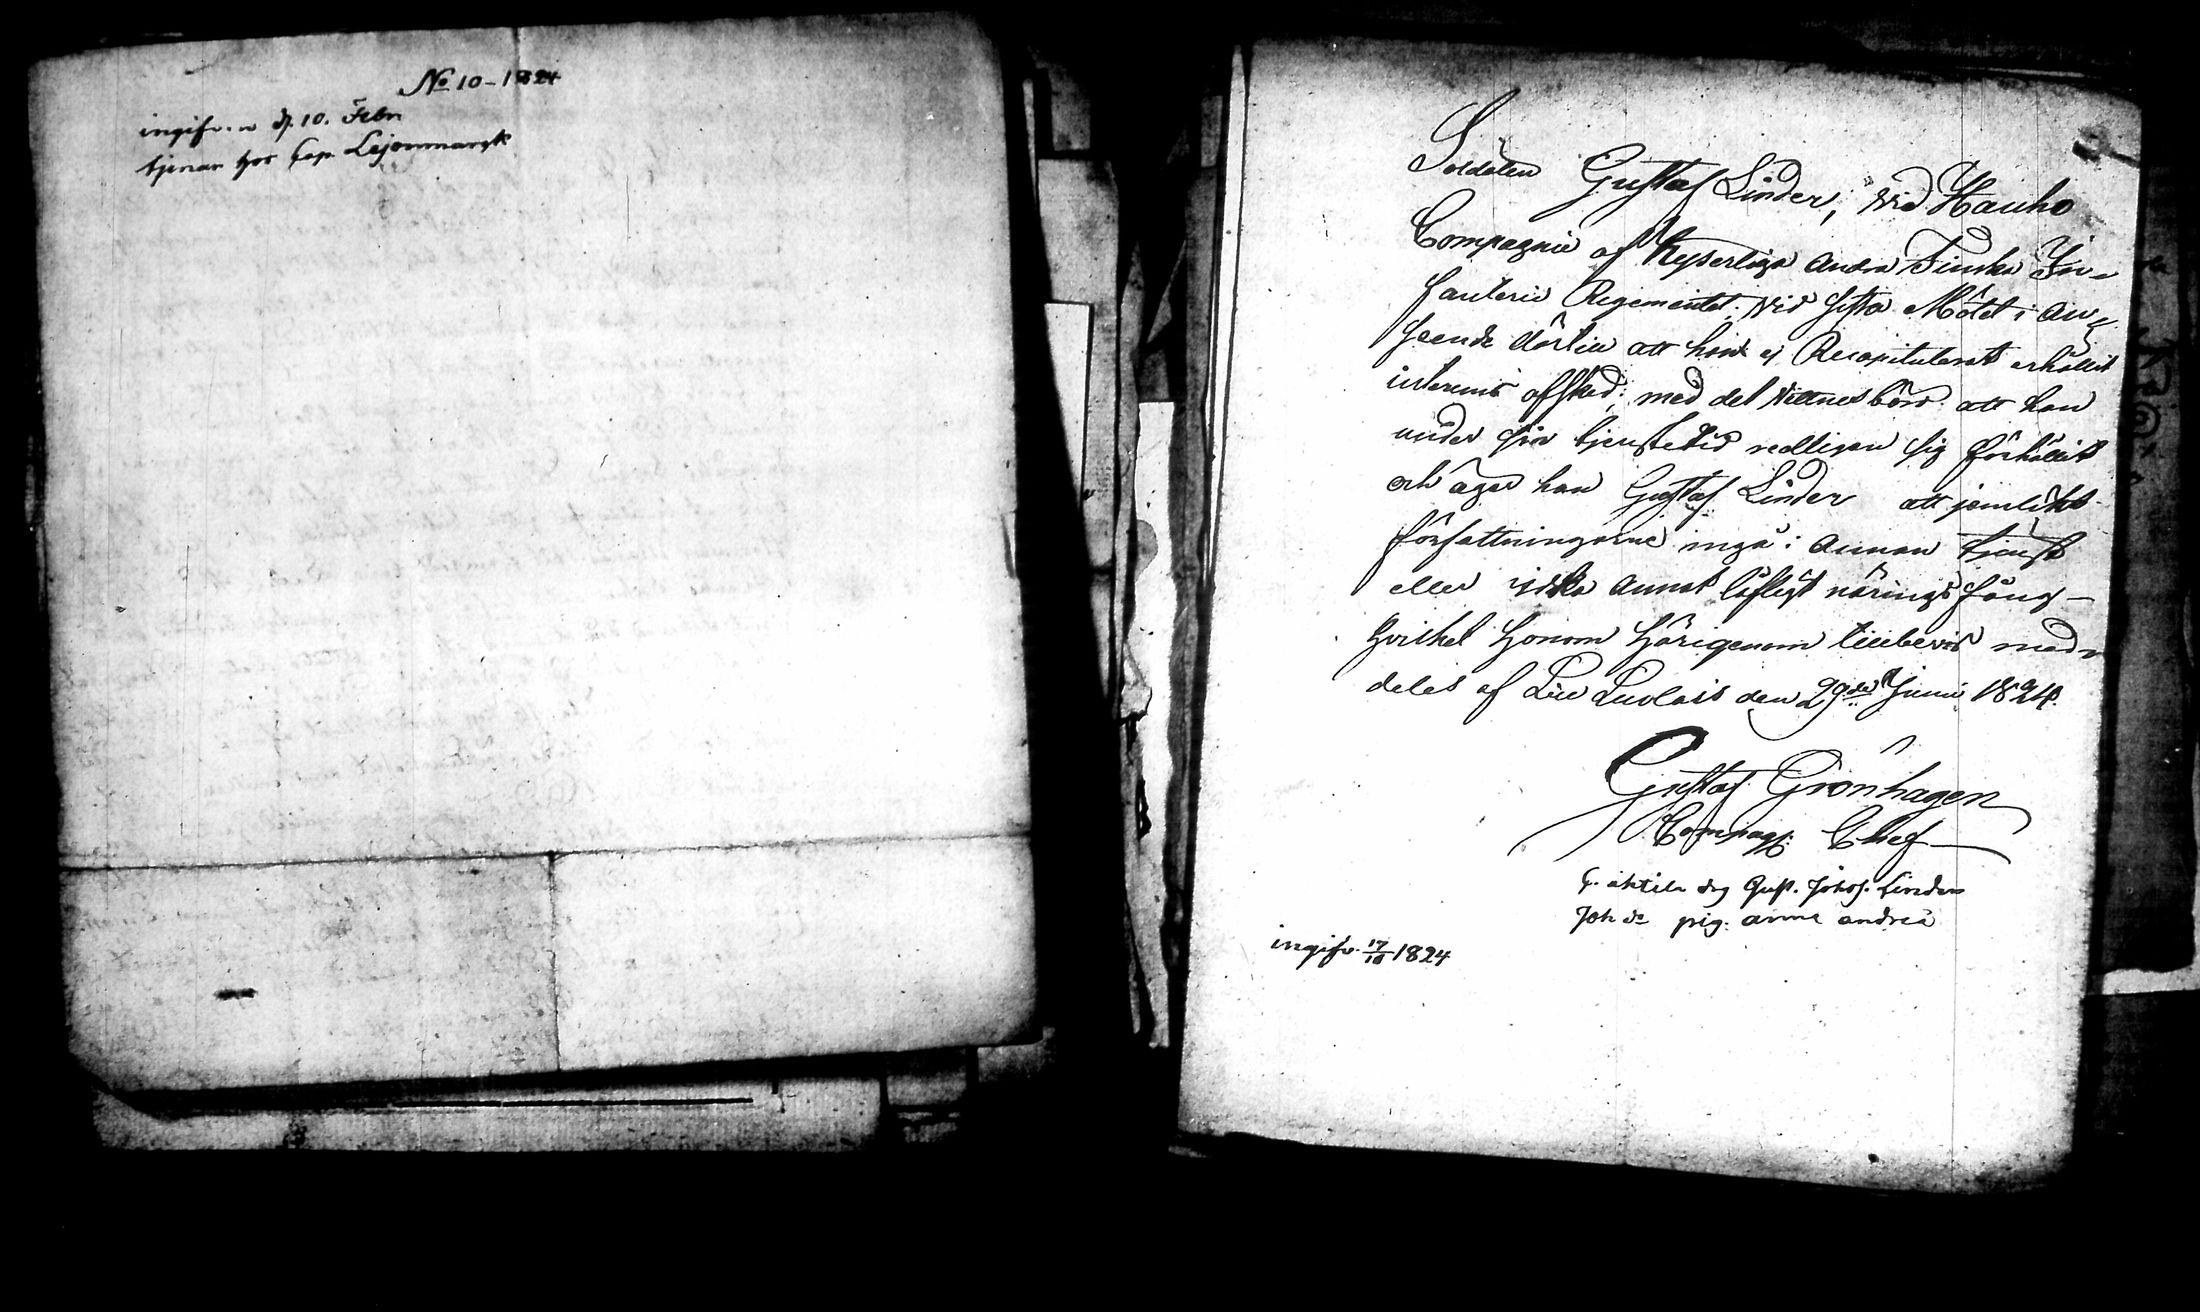 No 10 - 1824
ingifven d. 10. Febr
tjenar hos Cap. Lejonmarck
Soldaten Gustaf Linder, vid Hauho
Compagnie af Kejserliga Andra Finska In-
fanterie Regementet, vid sista Mötet i an-
seende dertill att han ej Recapitulerat erhållit
interims afsked; med det vittnesbörd att han
under sin tjenstetid redligen sig förhållit
och äger han Gustaf Linder att jemlikt
författningarne ingå i annan tjenst
eller idka annat lofligt näringsfång -
hvilket honom härigenom till bevis med-
delas af Luolais den 29de Junii 1824.
Gustaf Grönhagen
Compag: Chef
drg Gust. Johos. Linder
pig. Anna Andrea
ingifv. 17/10 1824